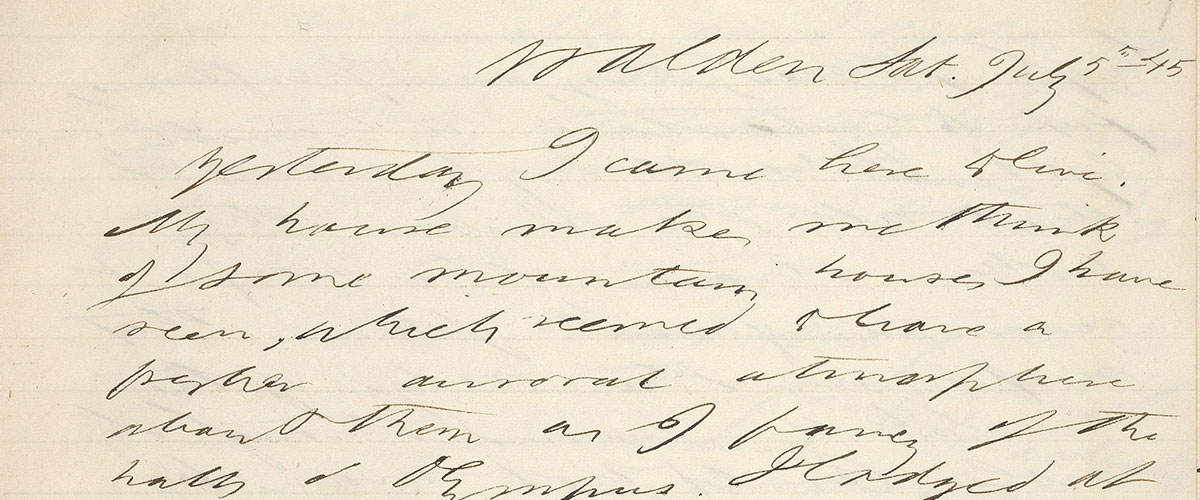 Walden Sat. July 5th—45
Yesterday I came here to live.
My house makes me think
of some mountain houses I have
seen, which seemed to have a
fresher auroral atmosphere
about them as I fancy of the
halls of Olympus. I lodged at